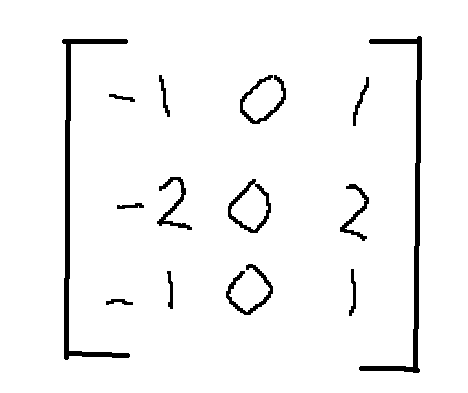 -1 0 1
-2 0 2
-1 0 1